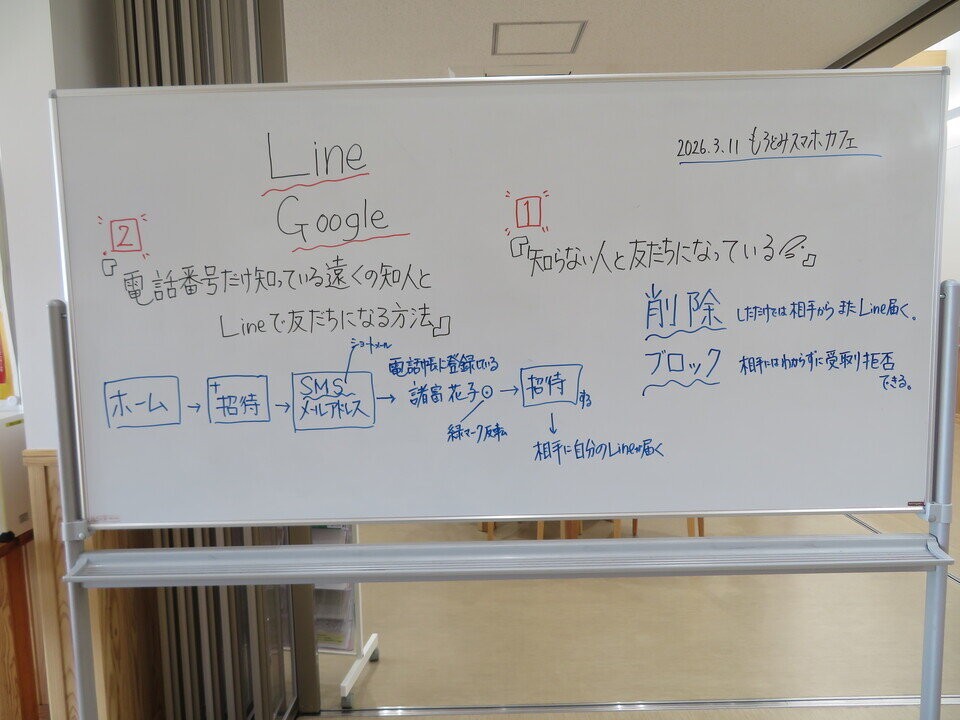 2026.3.11 もろどみスマホカフェ
Line
Google
1
『知らない人と友だちになっている』
削除 しただけでは相手からまたLine届く。
ブロック 相手にはわからずに受取り拒否
できる。
2
『電話番号だけ知っている遠くの知人と
Lineで友だちになる方法』
ショートメール
電話帳に登録している
ホーム → +招待 → SMS → 諸富花子 → 招待する
メールアドレス
緑マーク反転
↓
相手に自分のLineが届く